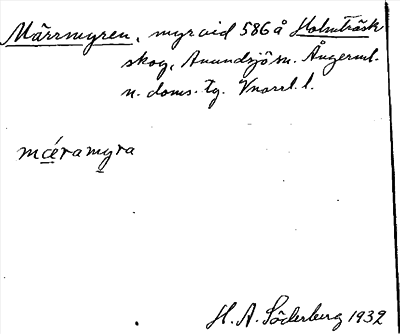 Märrmyren, myr vid 586 å Holmträsk
skog, Anundsjö sn. Ångerml.
n. doms. tg. Vnorrl. l.
mǽramyra
H. A. Söderberg 1932